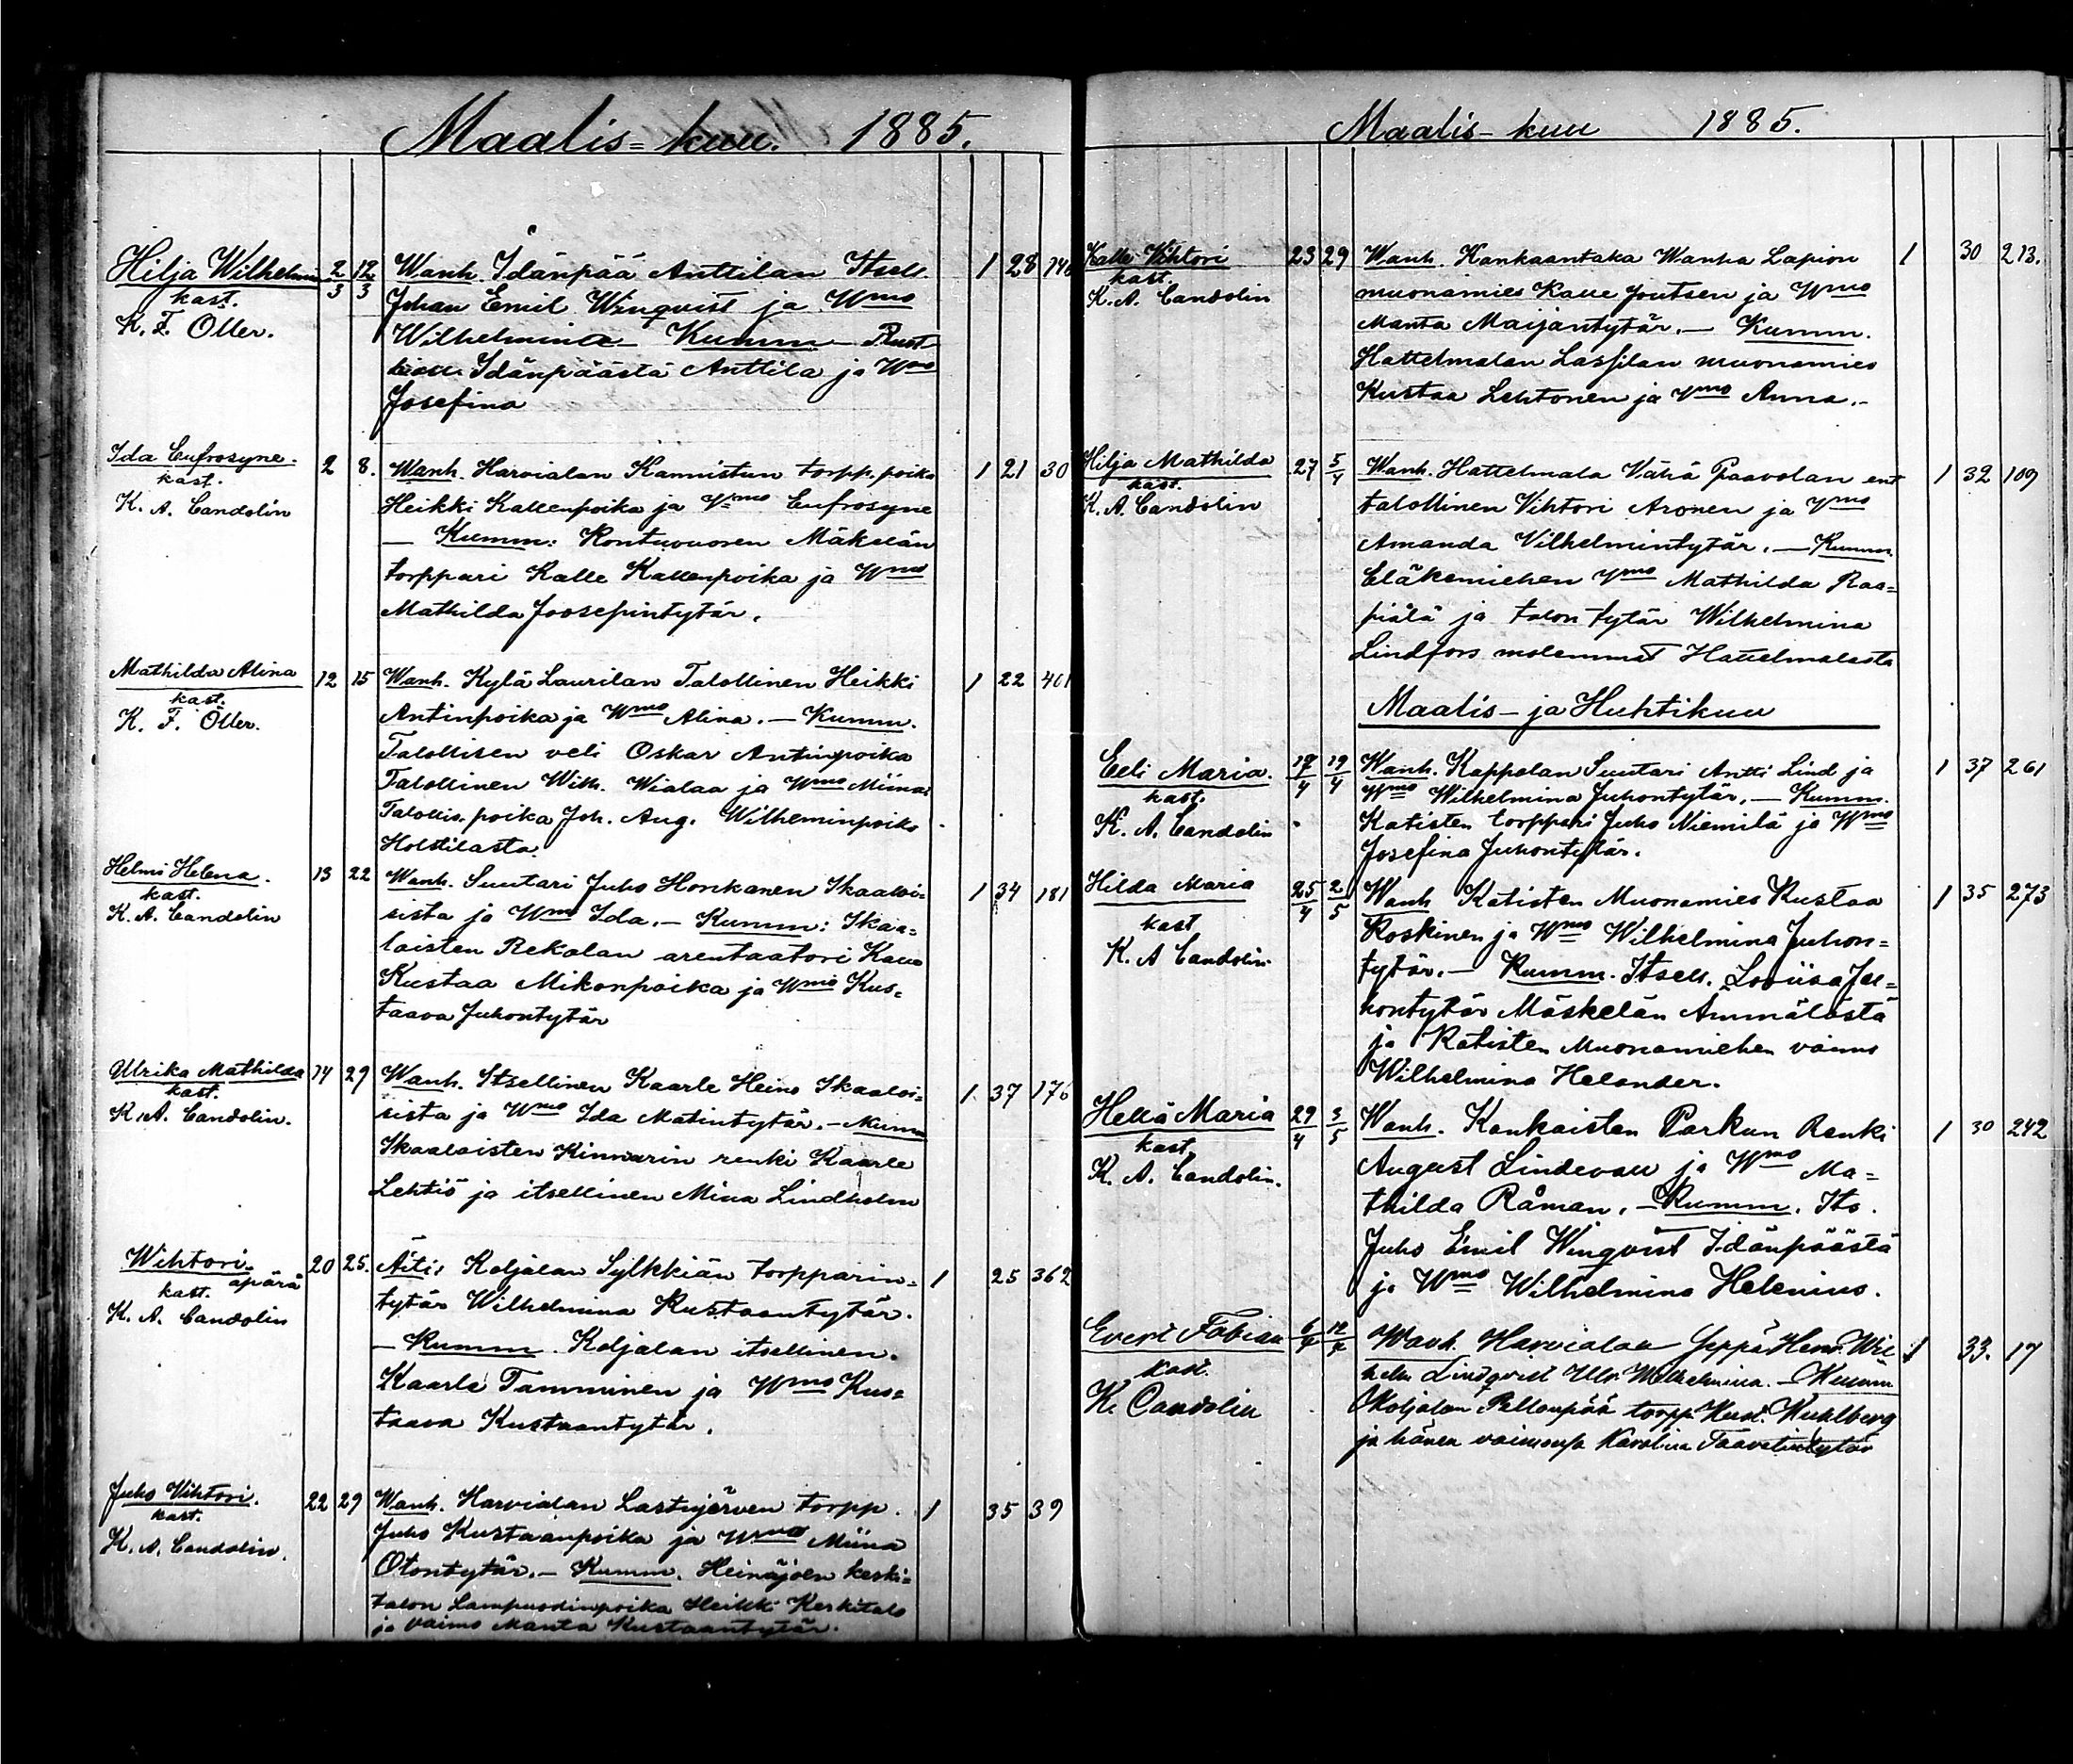 Maalis-kuu. 1885.
Hilja Wilhelmina 2/3 12/3 Wanh. Idänpää Anttilan Itsell. 1 28
kast. Johan Emil Winqvist ja Wmo
K. F. Öller. Wilhelmina Kumm
Idänpäästä Anttila ja Wmo
Josefina
Ida Eufrosyne. 2 8. Wanh. Harvialan Kannistun torpp. poika 1 21 30
kast. Heikki Kallenpoika ja Vmo Eufrosyne
K. A. Candolin — Kumm: Kontuvuoren Mäkelän
torppari Kalle Kallenpoika ja Wmo
Mathilda Joosepintytär.
Mathilda Alina 12 15 Wanh. Kylä Laurilan Talollinen Heikki 1 22 401
kast. Antinpoika ja Wmo Alina. — Kumm.
K. F. Öller. Talollisen veli Oskar Antinpoika
Talollinen Wilh. Wialaa ja Wmo Miina
Tallollis. poika Joh. Aug. Wilheminpoika
Holstilasta.
Helmi Helena. 13 22 Wanh. Suutari Juho Honkanen Ikaaloi- 1 34 181
kast. sista ja Wmo Ida. — Kumm: Ikaa-
K. A. Candolin loisten Rekolan arentaatori Kalle
Kustaa Mikonpoika ja Wmo Kus-
taava Juhontytär
Ulrika Mathilda 14 29 Wanh. Itsellinen Kaarle Heino Ikaaloi- 1 37 176
kast. sista ja Wmo Ida Matintytär. — Kumm
K. A. Candolin. Ikaaloisten Kinnarin renki Kaarle
Lehtiö ja itsellinen Miina Lindholm
Wihtori. 20 25. Äiti: Koljalan Sylkkiän torpparin- 1 25 362
apärä
kast. tytär Wilhelmina Kustaantytär.
K. A. Candolin — Kumm. Koljalan itsellinen
Kaarle Tamminen ja Wmo Kus-
taava Kustaantytär.
Juho Vihtori. 22 29 Wanh. Harvialan Lastujärven torpp. 1 35 39
kast. Juho Kustaanpoika ja Wmo Miina
K. A. Candolin. Otontytär. — Kumm. Heinäjoen keski-
talon Lampuodinpoika Heikki Keskitalo
ja vaimo Manta Kustaantytär.
Maalis-kuu 1885.
Kalle Vihtori 23 29 Wanh. Kankaantaka Wanha Lapion 1 30 213.
kast. muonamies Kalle Joutsen ja Wmo
K. A. Candolin Manta Maijantytär. — Kumm.
Hattelmalan Lassilan muonamies
Kustaa Lehtonen ja Vmo Anna. —
Hilja Mathilda 27 5/4 Wanh. Hattelmala Vähä Paavolan ent 1 32 109
kast. talollinen Vihtori Aronen ja Vmo
K. A. Candolin Amanda Vilhelmintytär. — Kumm.
Eläkemiehen Vmo Mathilda Raa-
piälä ja talon tytär Wilhelmina
Lindfors molemmat Hattelmalasta
Maalis- ja Huhtikuu
Eeli Maria. 17/4 19/4 Wanh. Kappolan Suutari Antti Lind ja 1 37 261
kast. Wmo Wilhelmina Juhontytär. — Kumm.
K. A. Candolin Katisten torppari Juho Niemilä ja Wmo
Josefina Juhontytär.
Hilda Maria 25/4 2/5 Wanh Katisten Muonamies Kustaa 1 35 273
kast Koskinen ja Wmo Wilhelmina Juhon-
K. A Candolin. tytär. — Kumm. Itsell. Loviisa Ju-
hontytär Mäskelän Ämmälästä
ja Katisten Muonamiehen vaimo
Wilhelmina Helander.
Hellä Maria 29/4 3/5 Wanh. Kankaisten Parkun Renki 1 30 242
kast. August Lindevall ja Wmo Ma-
K. A. Candolin. thilda Råman. — Kumm. Its.
Juho Emil Winqvist Idänpäästä
ja Wmo Wilhelmina Helenius.
Evert Fabian 12/4 Wanh. Harvialan Seppä Henr. Wil 1 33. 17
kast. helm Lindqvist Wilhelmina. — Kumm
K. Candolin Koljalan Pellonpää torpp. Kust. Kuhlberg
ja hänen vaimonsa Karolina Taavetintytär